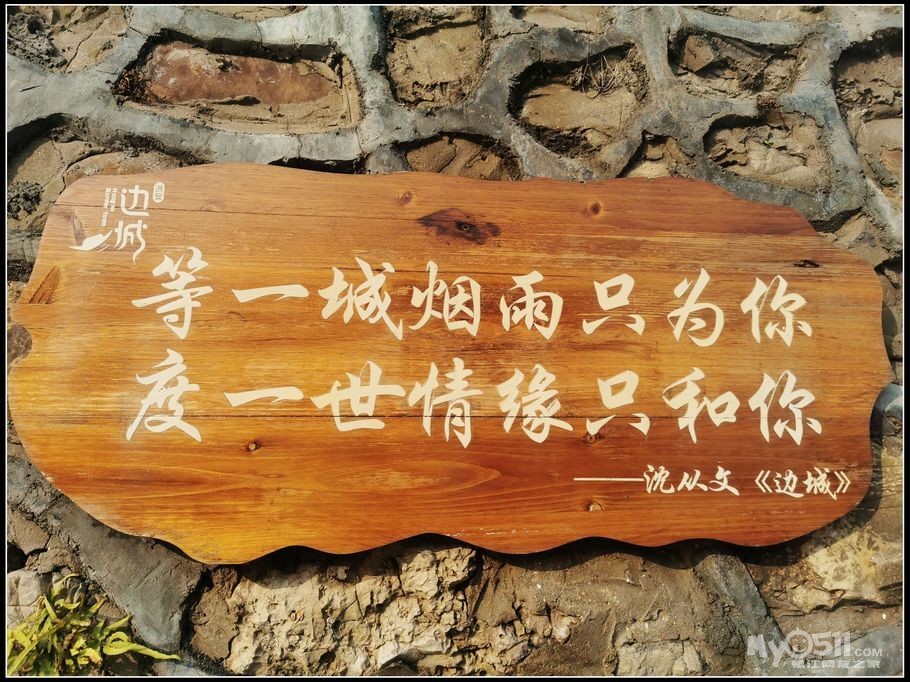 边城
等一城烟雨只为你
度一世情缘只和你
——沈从文《边城》
My0511.COM
镇江网友之家